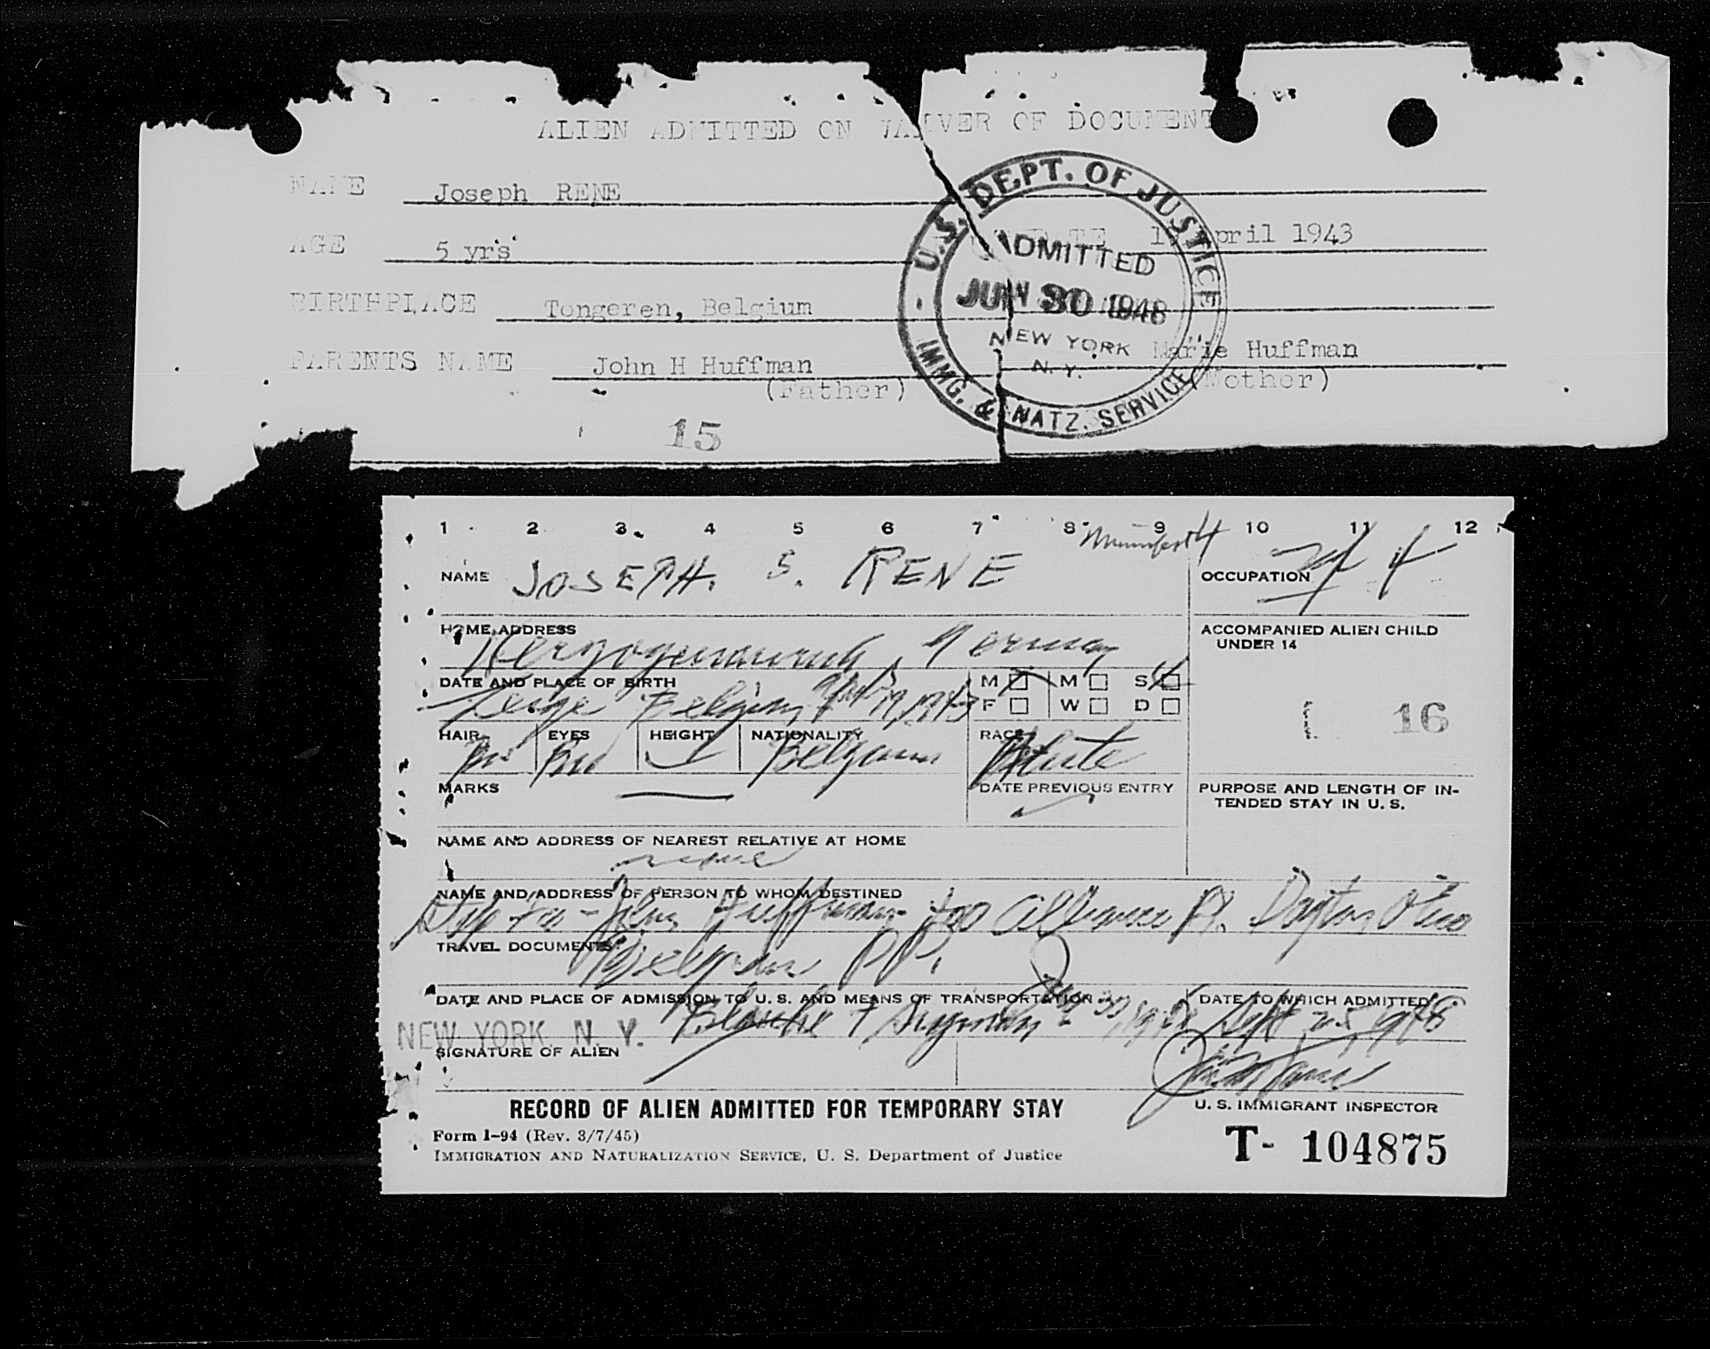 ALIEN ADMITTED ON WAIVER OF DOCUMENT
NAME Joseph RENE
AGE 5 yrs DATE 1 April 1943
BIRTHPLACE Tongeren, Belgium
PARENTS NAME John H Huffman Marie Huffman
(Father) (Mother)
15
U.S. DEPT. OF JUSTICE
ADMITTED
JUN 30 1948
NEW YORK
N.Y.
IMMG. & NATZ. SERVICE
1 2 3 4 5 6 7 8 9 10 11 12
Manifest 4
NAME JOSEPH. S. RENE OCCUPATION 4
HOME ADDRESS Herzogenaurach, Germany
ACCOMPANIED ALIEN CHILD
UNDER 14
DATE AND PLACE OF BIRTH M M S
Belgium 1943 F W D
16
HAIR Br EYES Bro HEIGHT NATIONALITY Belgium RACE White
MARKS DATE PREVIOUS ENTRY PURPOSE AND LENGTH OF IN-
TENDED STAY IN U. S.
NAME AND ADDRESS OF NEAREST RELATIVE AT HOME
none
NAME AND ADDRESS OF PERSON TO WHOM DESTINED
John Huffman 400 Alliance Pl. Dayton Ohio
TRAVEL DOCUMENTS Belgian PP.
DATE AND PLACE OF ADMISSION TO U. S. AND MEANS OF TRANSPORTATION DATE TO WHICH ADMITTED
NEW YORK, N. Y. June 30, 1948 Sept 25, 1948
SIGNATURE OF ALIEN
RECORD OF ALIEN ADMITTED FOR TEMPORARY STAY
U. S. IMMIGRANT INSPECTOR
Form I-94 (Rev. 3/7/45)
IMMIGRATION AND NATURALIZATION SERVICE, U. S. Department of Justice
T- 104875